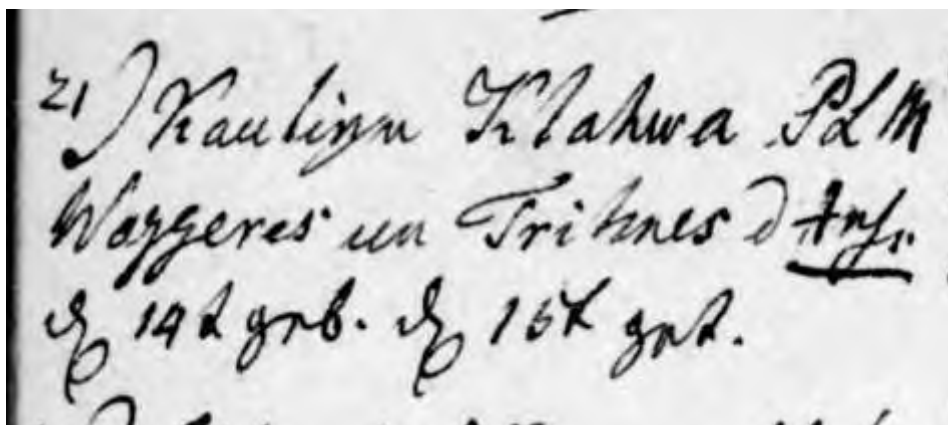 21) Kauliņu Klahwa P L M
Waggeres un Trihnes d Ans.
d. 14t geb. d. 15t get.